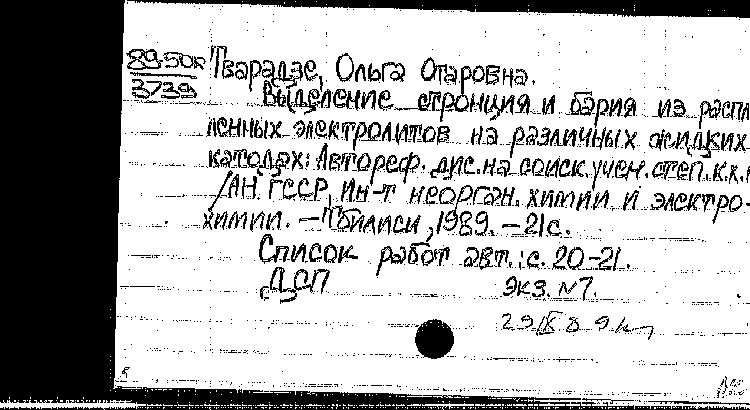 89-50к
3739
Тварадзе, Ольга Отаровна.
Выделение стронция и бария из распл
ленных электролитов на различных жидких
катодах: Автореф. дис. на соиск. учен. степ. к.х.н
/АН ГССР, Ин-т неорган. химии и электро-
химии. — Тбилиси, 1989. — 21с.
Список работ авт.: с. 20-21.
ДСП
Экз. №7.